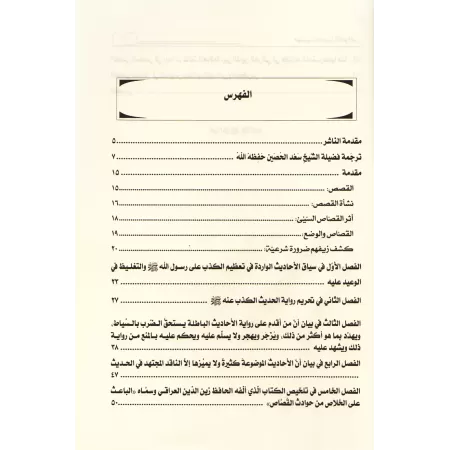 الفهرس
مقدمة الناشر ٥
ترجمة فضيلة الشيخ سعد الحصين حفظه الله ٧
مقدمة ١٥
القصص: ١٥
نشأة القصص: ١٦
أثر القصاص السيّئ: ١٨
القصاص والوضع: ١٩
كشف زيفهم ضرورة شرعية: ٢٠
الفصل الأول في سياق الأحاديث الواردة في تعظيم الكذب على رسول الله ﷺ والتغليظ في
الوعيد عليه ٢٢
الفصل الثاني في تحريم رواية الحديث الكذب عنه ﷺ ٢٧
الفصل الثالث في بيان أنّ من أقدم على رواية الأحاديث الباطلة يستحقّ الضرب بالسّياط،
ويهدّد بما هو أكثر من ذلك، ويزجر ويهجر ولا يسلّم عليه ويحكم عليه بالمنع من رواية
ذلك ويشهد عليه ٢٨
الفصل الرابع في بيان أنّ الأحاديث الموضوعة كثيرة ولا يميّزها إلاّ الناقد المجتهد في الحديث
٤٧
الفصل الخامس في تلخيص الكتاب الّذي ألفه الحافظ زين الدين العراقي وسمّاه «الباعث
على الخلاص من حوادث القصّاص» ٥٠